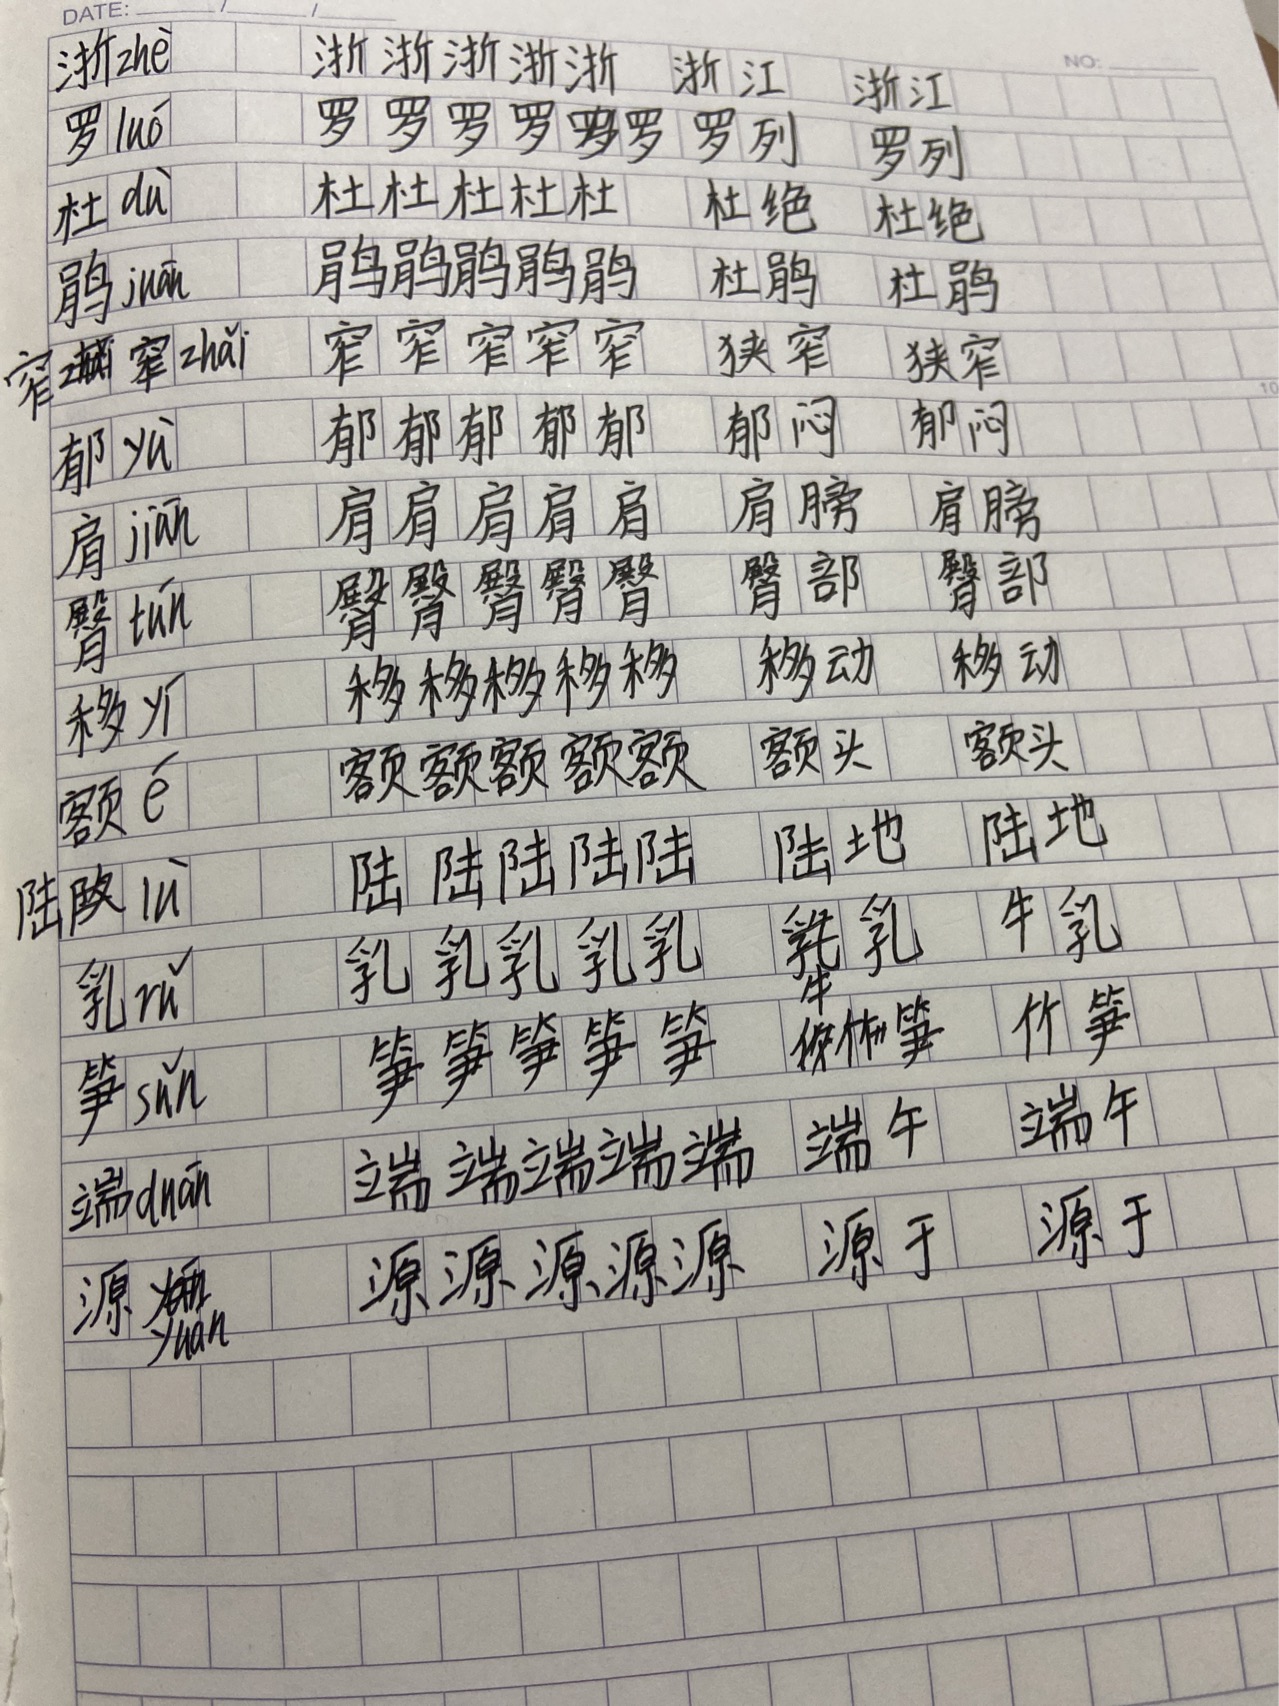 DATE: / /
NO:
浙zhè 浙浙浙浙浙 浙江 浙江
罗luó 罗罗罗罗罗 罗列 罗列
杜dù 杜杜杜杜杜 杜绝 杜绝
鹃juān 鹃鹃鹃鹃鹃 杜鹃 杜鹃
窄 窄zhǎi 窄窄窄窄窄 狭窄 狭窄
10
郁yù 郁郁郁郁郁 郁闷 郁闷
肩jiān 肩肩肩肩肩 肩膀 肩膀
臀tún 臀臀臀臀臀 臀部 臀部
移yí 移移移移移 移动 移动
额é 额额额额额 额头 额头
陆 lù 陆陆陆陆陆 陆地 陆地
乳rǔ 乳乳乳乳乳 牛乳 牛乳
笋sǔn 笋笋笋笋笋 笋 竹笋
端duān 端端端端端 端午 端午
源 yuán 源源源源源 源于 源于